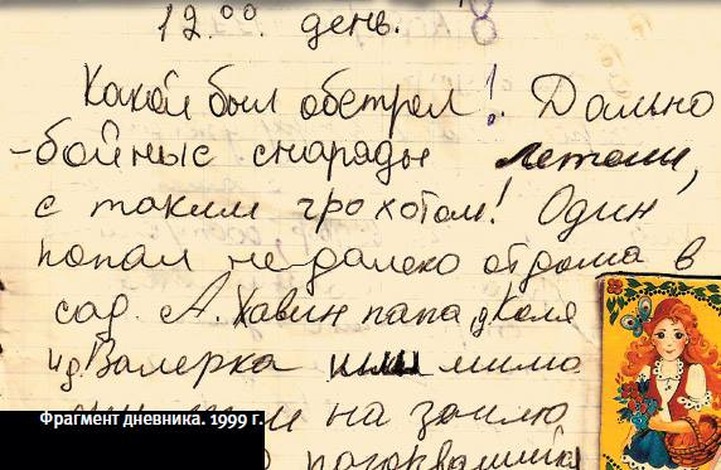 12.⁰⁰. день. 8
Какой был обстрел! Дально
-бойные снаряды летели,
с таким грохотом! Один
попал не-далеко от дома в
сад. А. Хавин папа, д. Коля
и д. Валерка шли мимо
на землю
Фрагмент дневника. 1999 г.